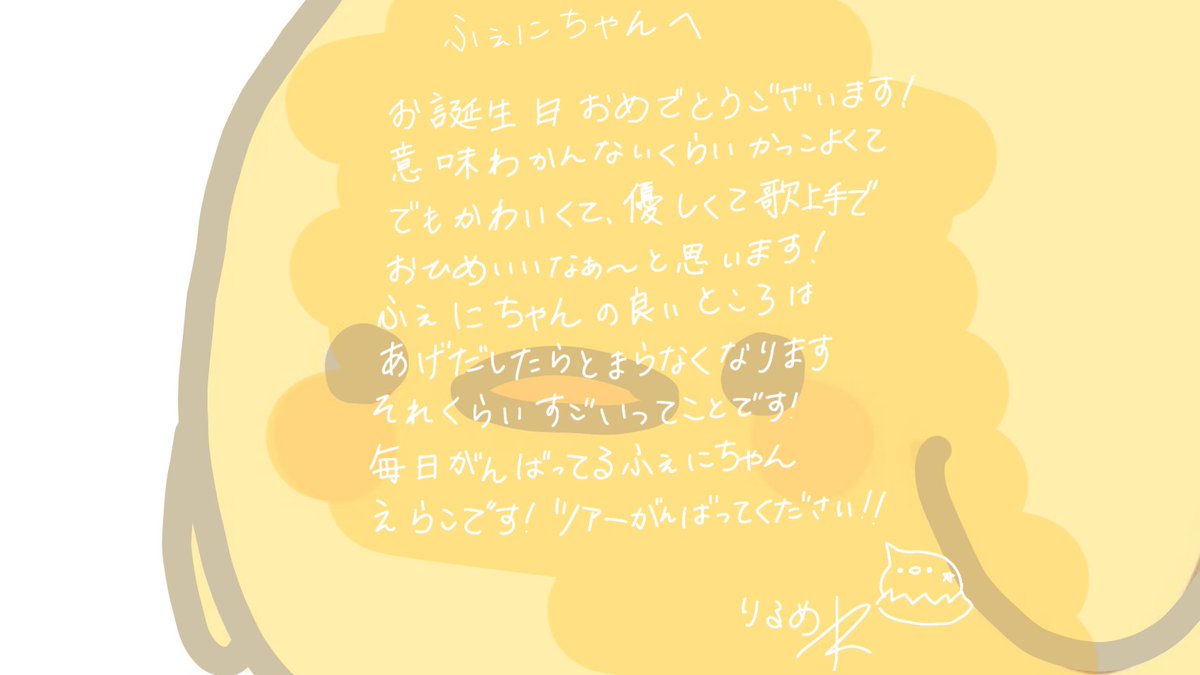 ふぇにちゃんへ
お誕生日おめでとうございます!
意味わかんないくらいかっこよくて
でもかわいくて、優しくて歌上手で
おひめいいなぁ〜と思います!
ふぇにちゃんの良いところは
あげだしたらとまらなくなります
それくらいすごいってことです!
毎日がんばってるふぇにちゃん
えらこです!ツアーがんばってください!!
りるめ